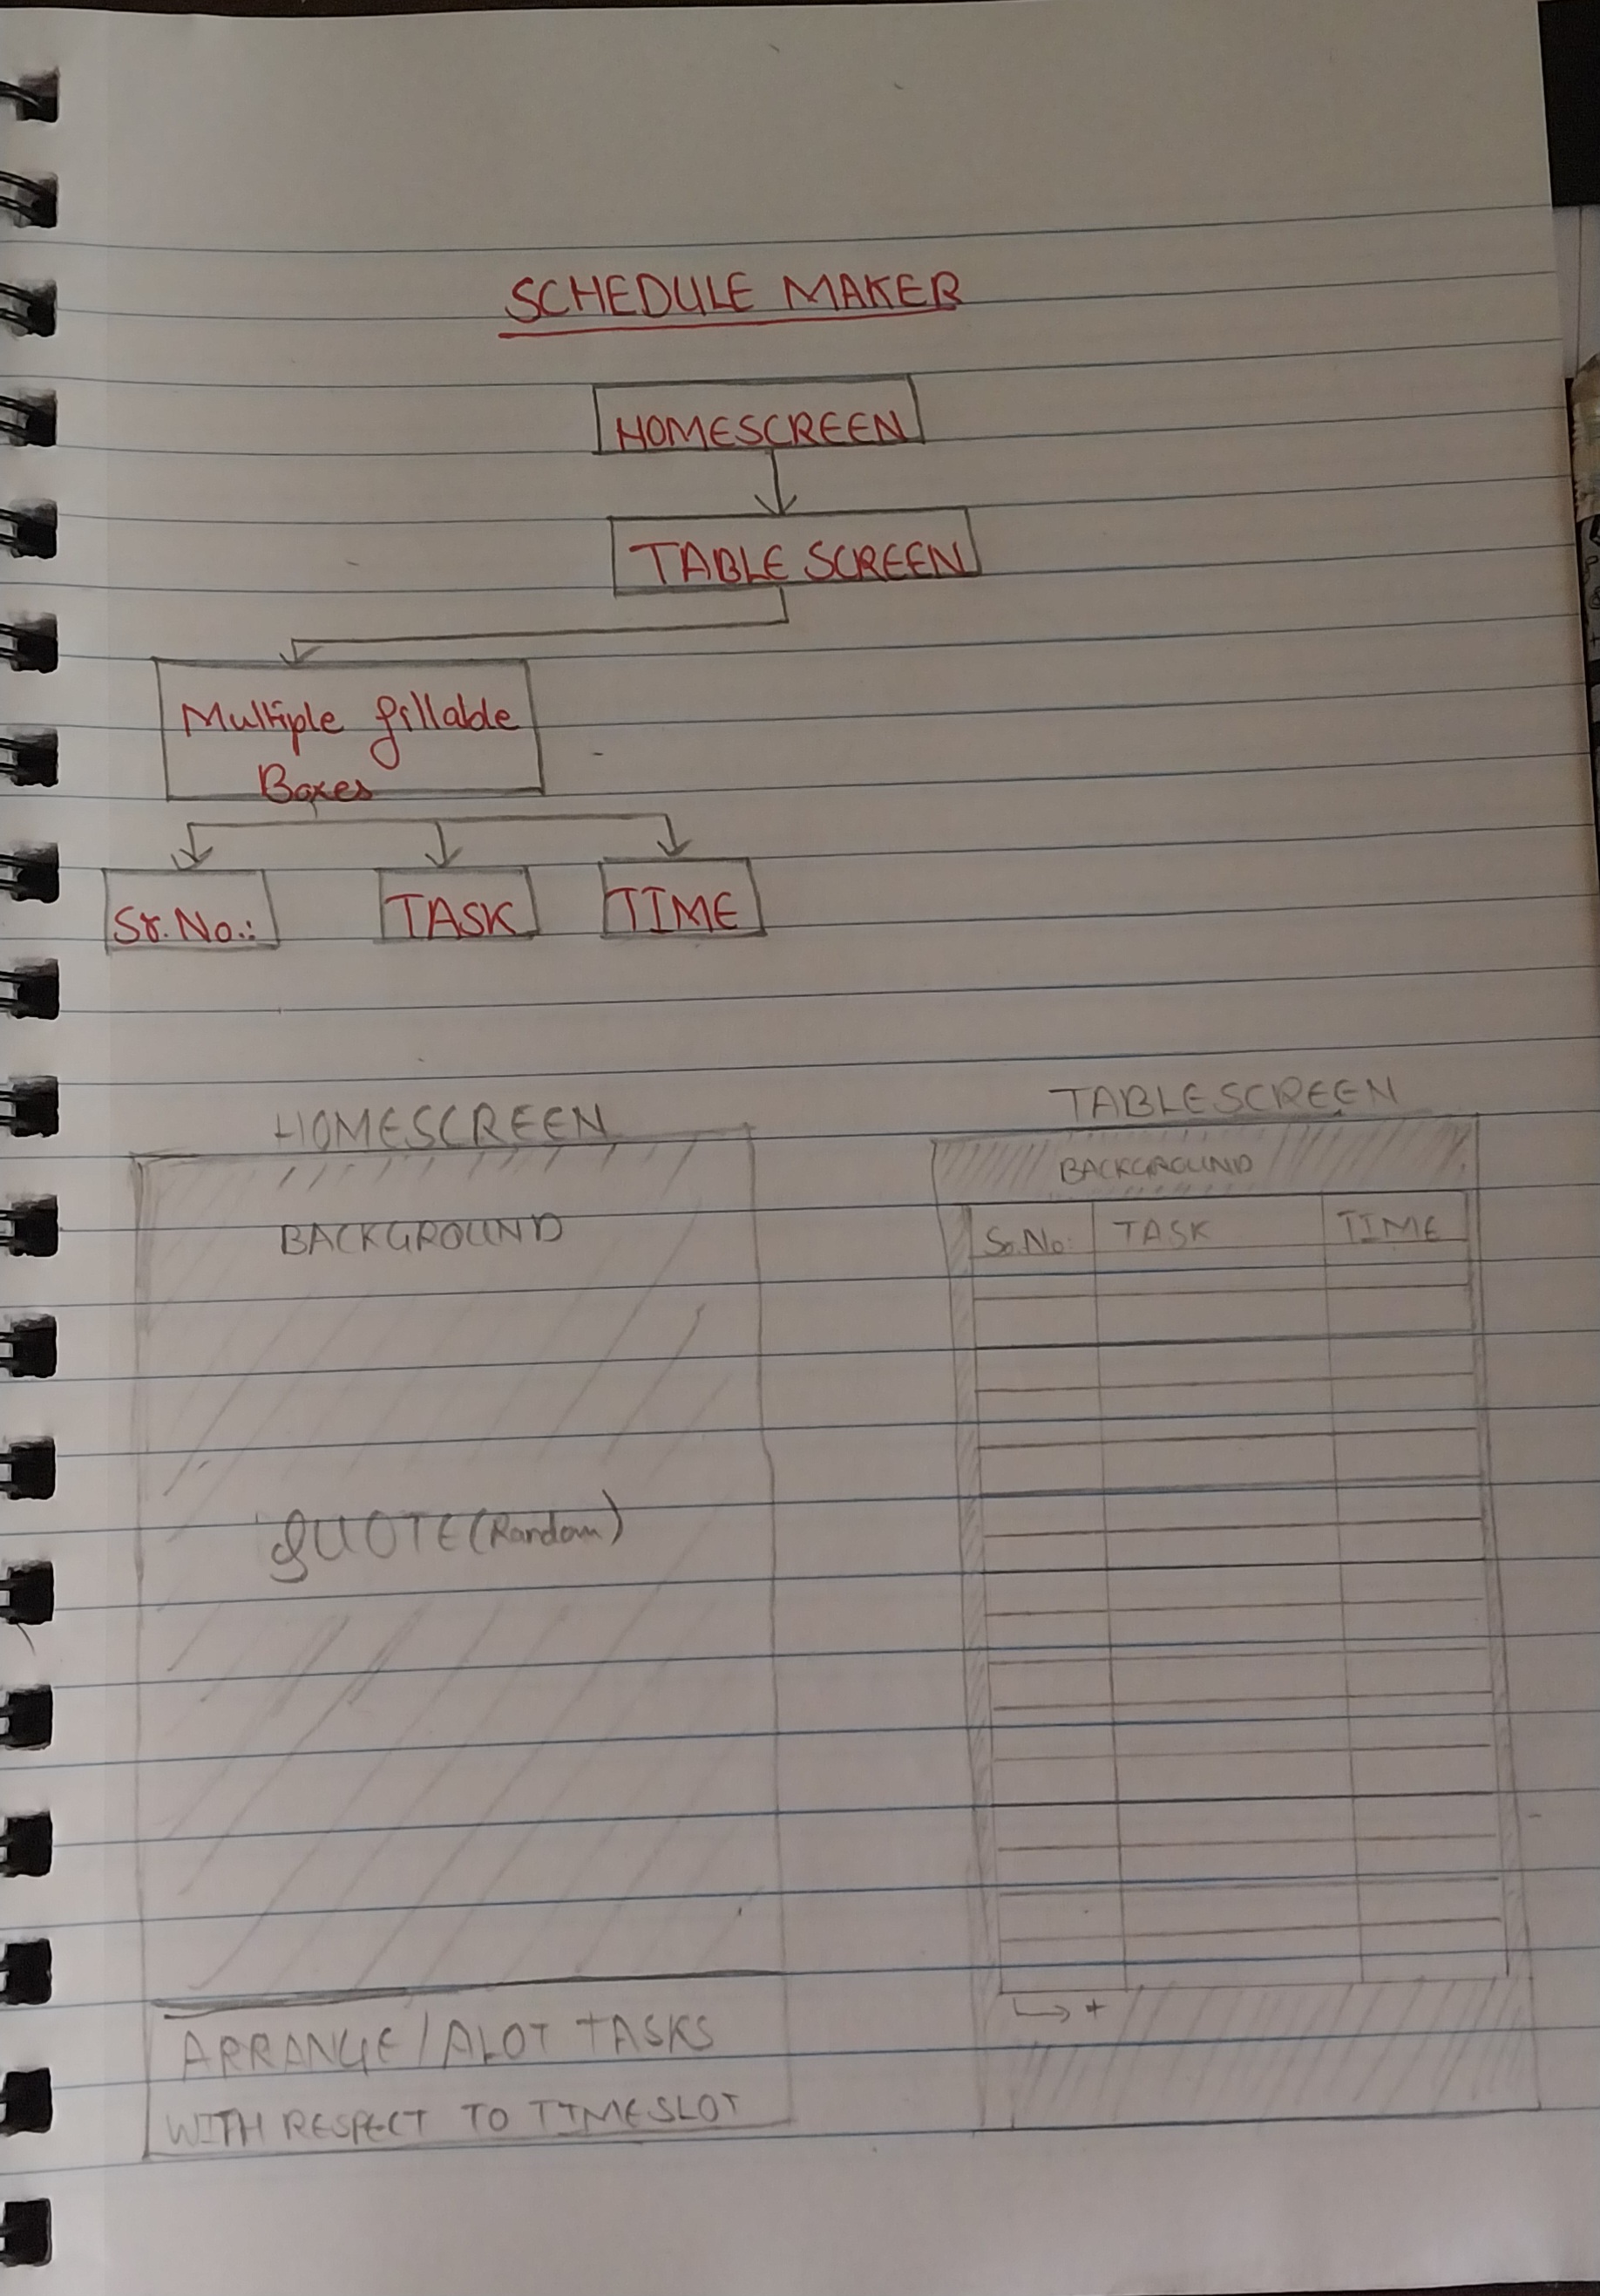 SCHEDULE MAKER
HOMESCREEN
TABLE SCREEN
Multiple fillable
Boxes
Sr.No.:
TASK
TIME
HOMESCREEN
BACKGROUND
QUOTE (Random)
ARRANGE/ALOT TASKS
WITH RESPECT TO TIMESLOT
TABLESCREEN
BACKGROUND
Sr.No: TASK TIME
+